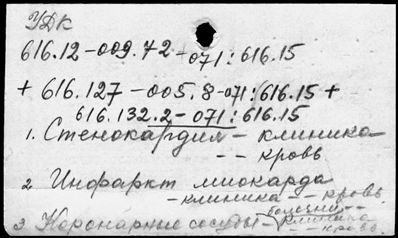 УДК
616.12-009.72+071:616.15
+ 616.127-005.8-071:616.15 +
616.132.2-071:616.15
1. Стенокардия - клиника
-- кровь
2 Инфаркт миокарда
-клиника -- кровь
3 Коронарные сосуды - болезни -
- клиника
- кровь